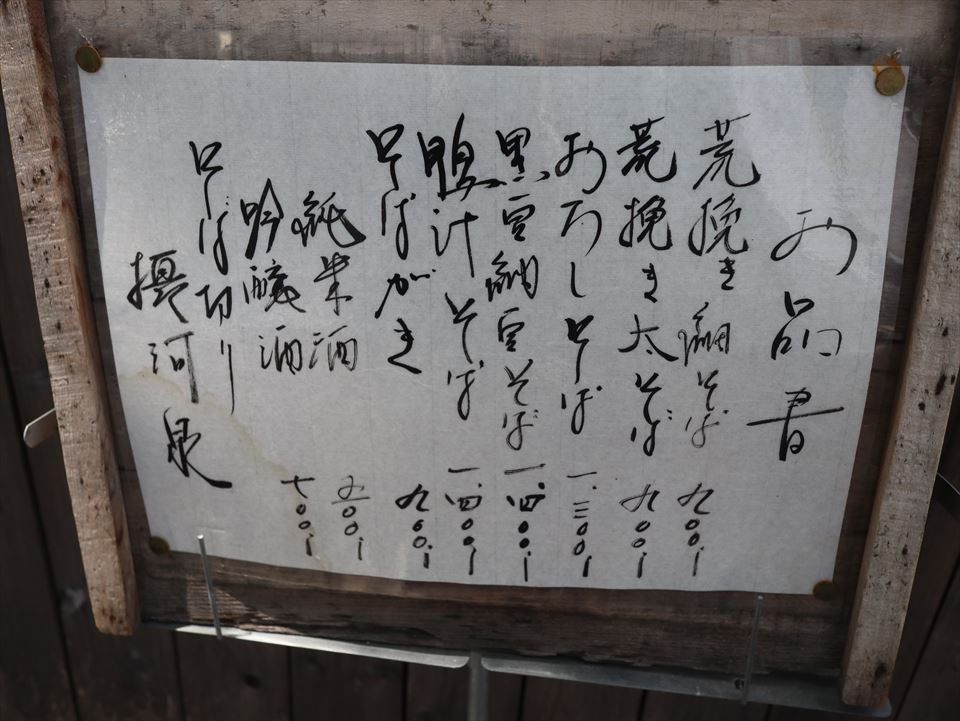 お品書
荒挽き細そば 九〇〇、i
荒挽き太そば 九〇〇、i
おろしそば 一、三〇〇、i
黒豆納豆そば 一、四〇〇、i
腹汁そば 一、四〇〇、i
そばがき 九〇〇、i
純米酒 五〇〇、i
吟醸酒 七〇〇、i
そば切り
摂河泉